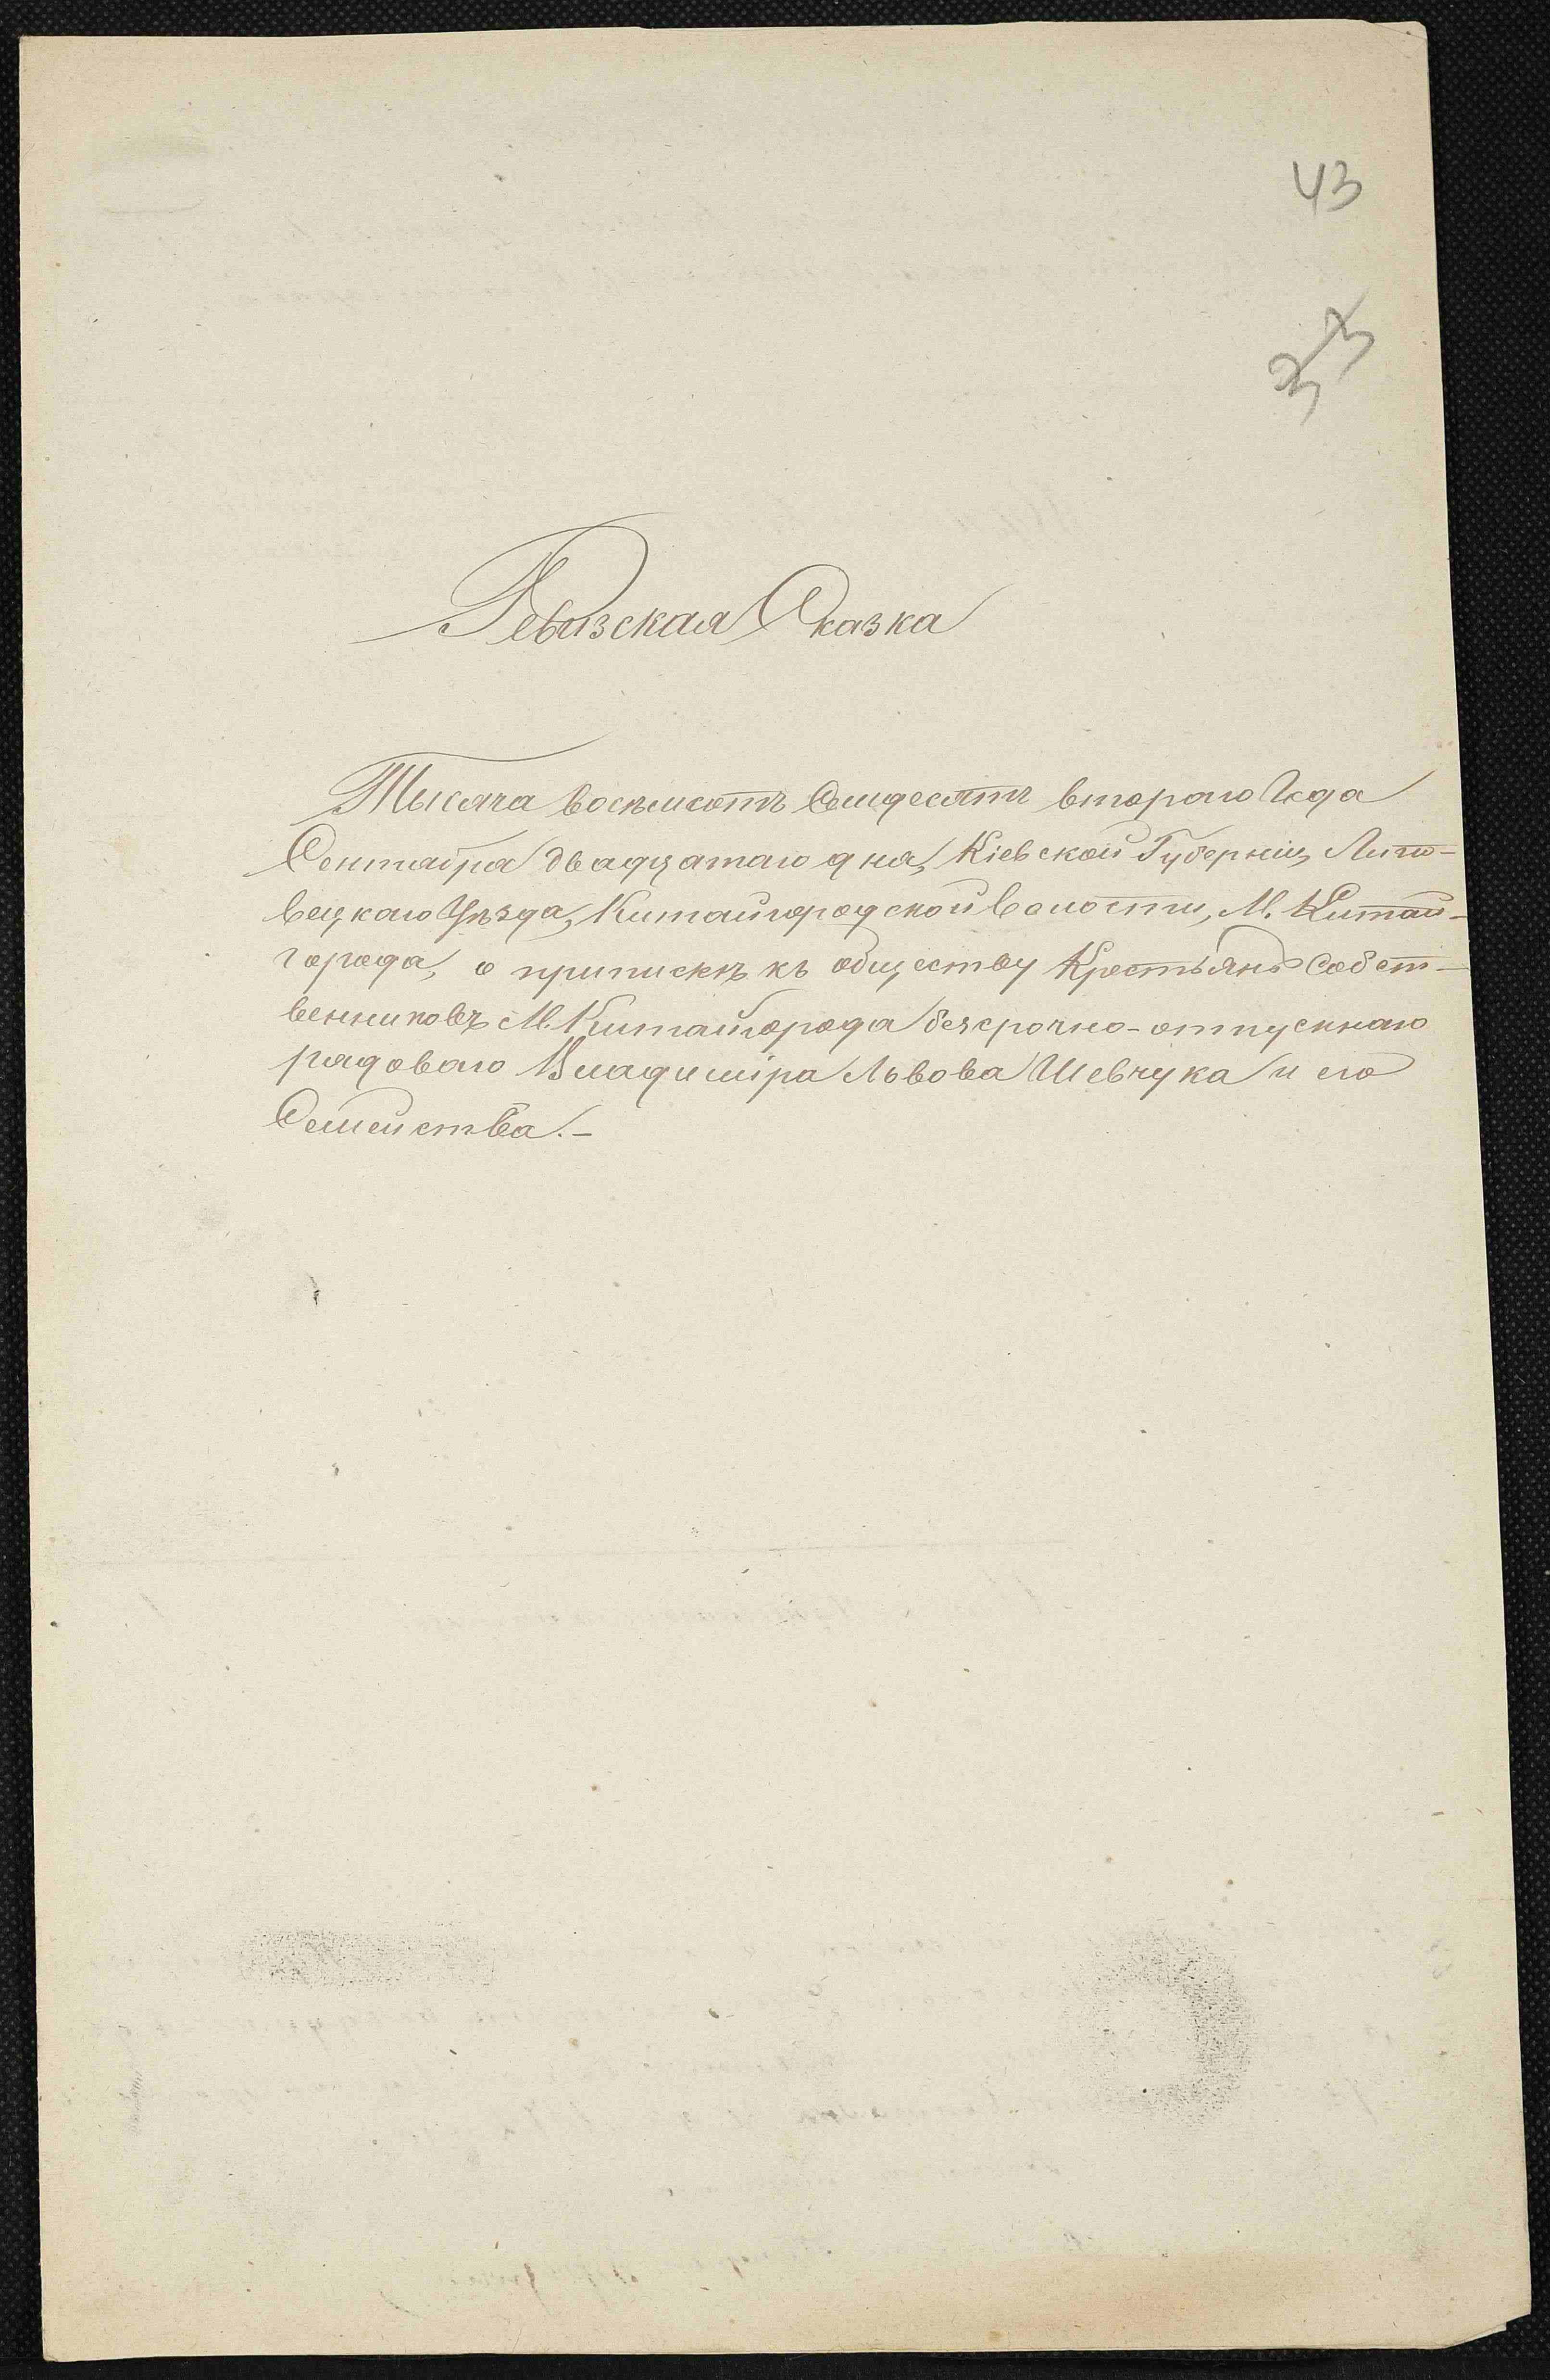 43
33
Ревизская Сказка
Тысяча восемьсотъ Семдесятъ втораго Года
Сентября двадцатаго дня, Кіевской Губерніи, Липо-
вецкаго Уѣзда, Китайгородской волости, М. Китай-
города, о припискѣ къ обществу Крестьянъ Собст-
венниковъ М. Китайгорода безсрочно-отпускнаго
рядоваго Владиміра Львова Шевчука и его
Семейства.-